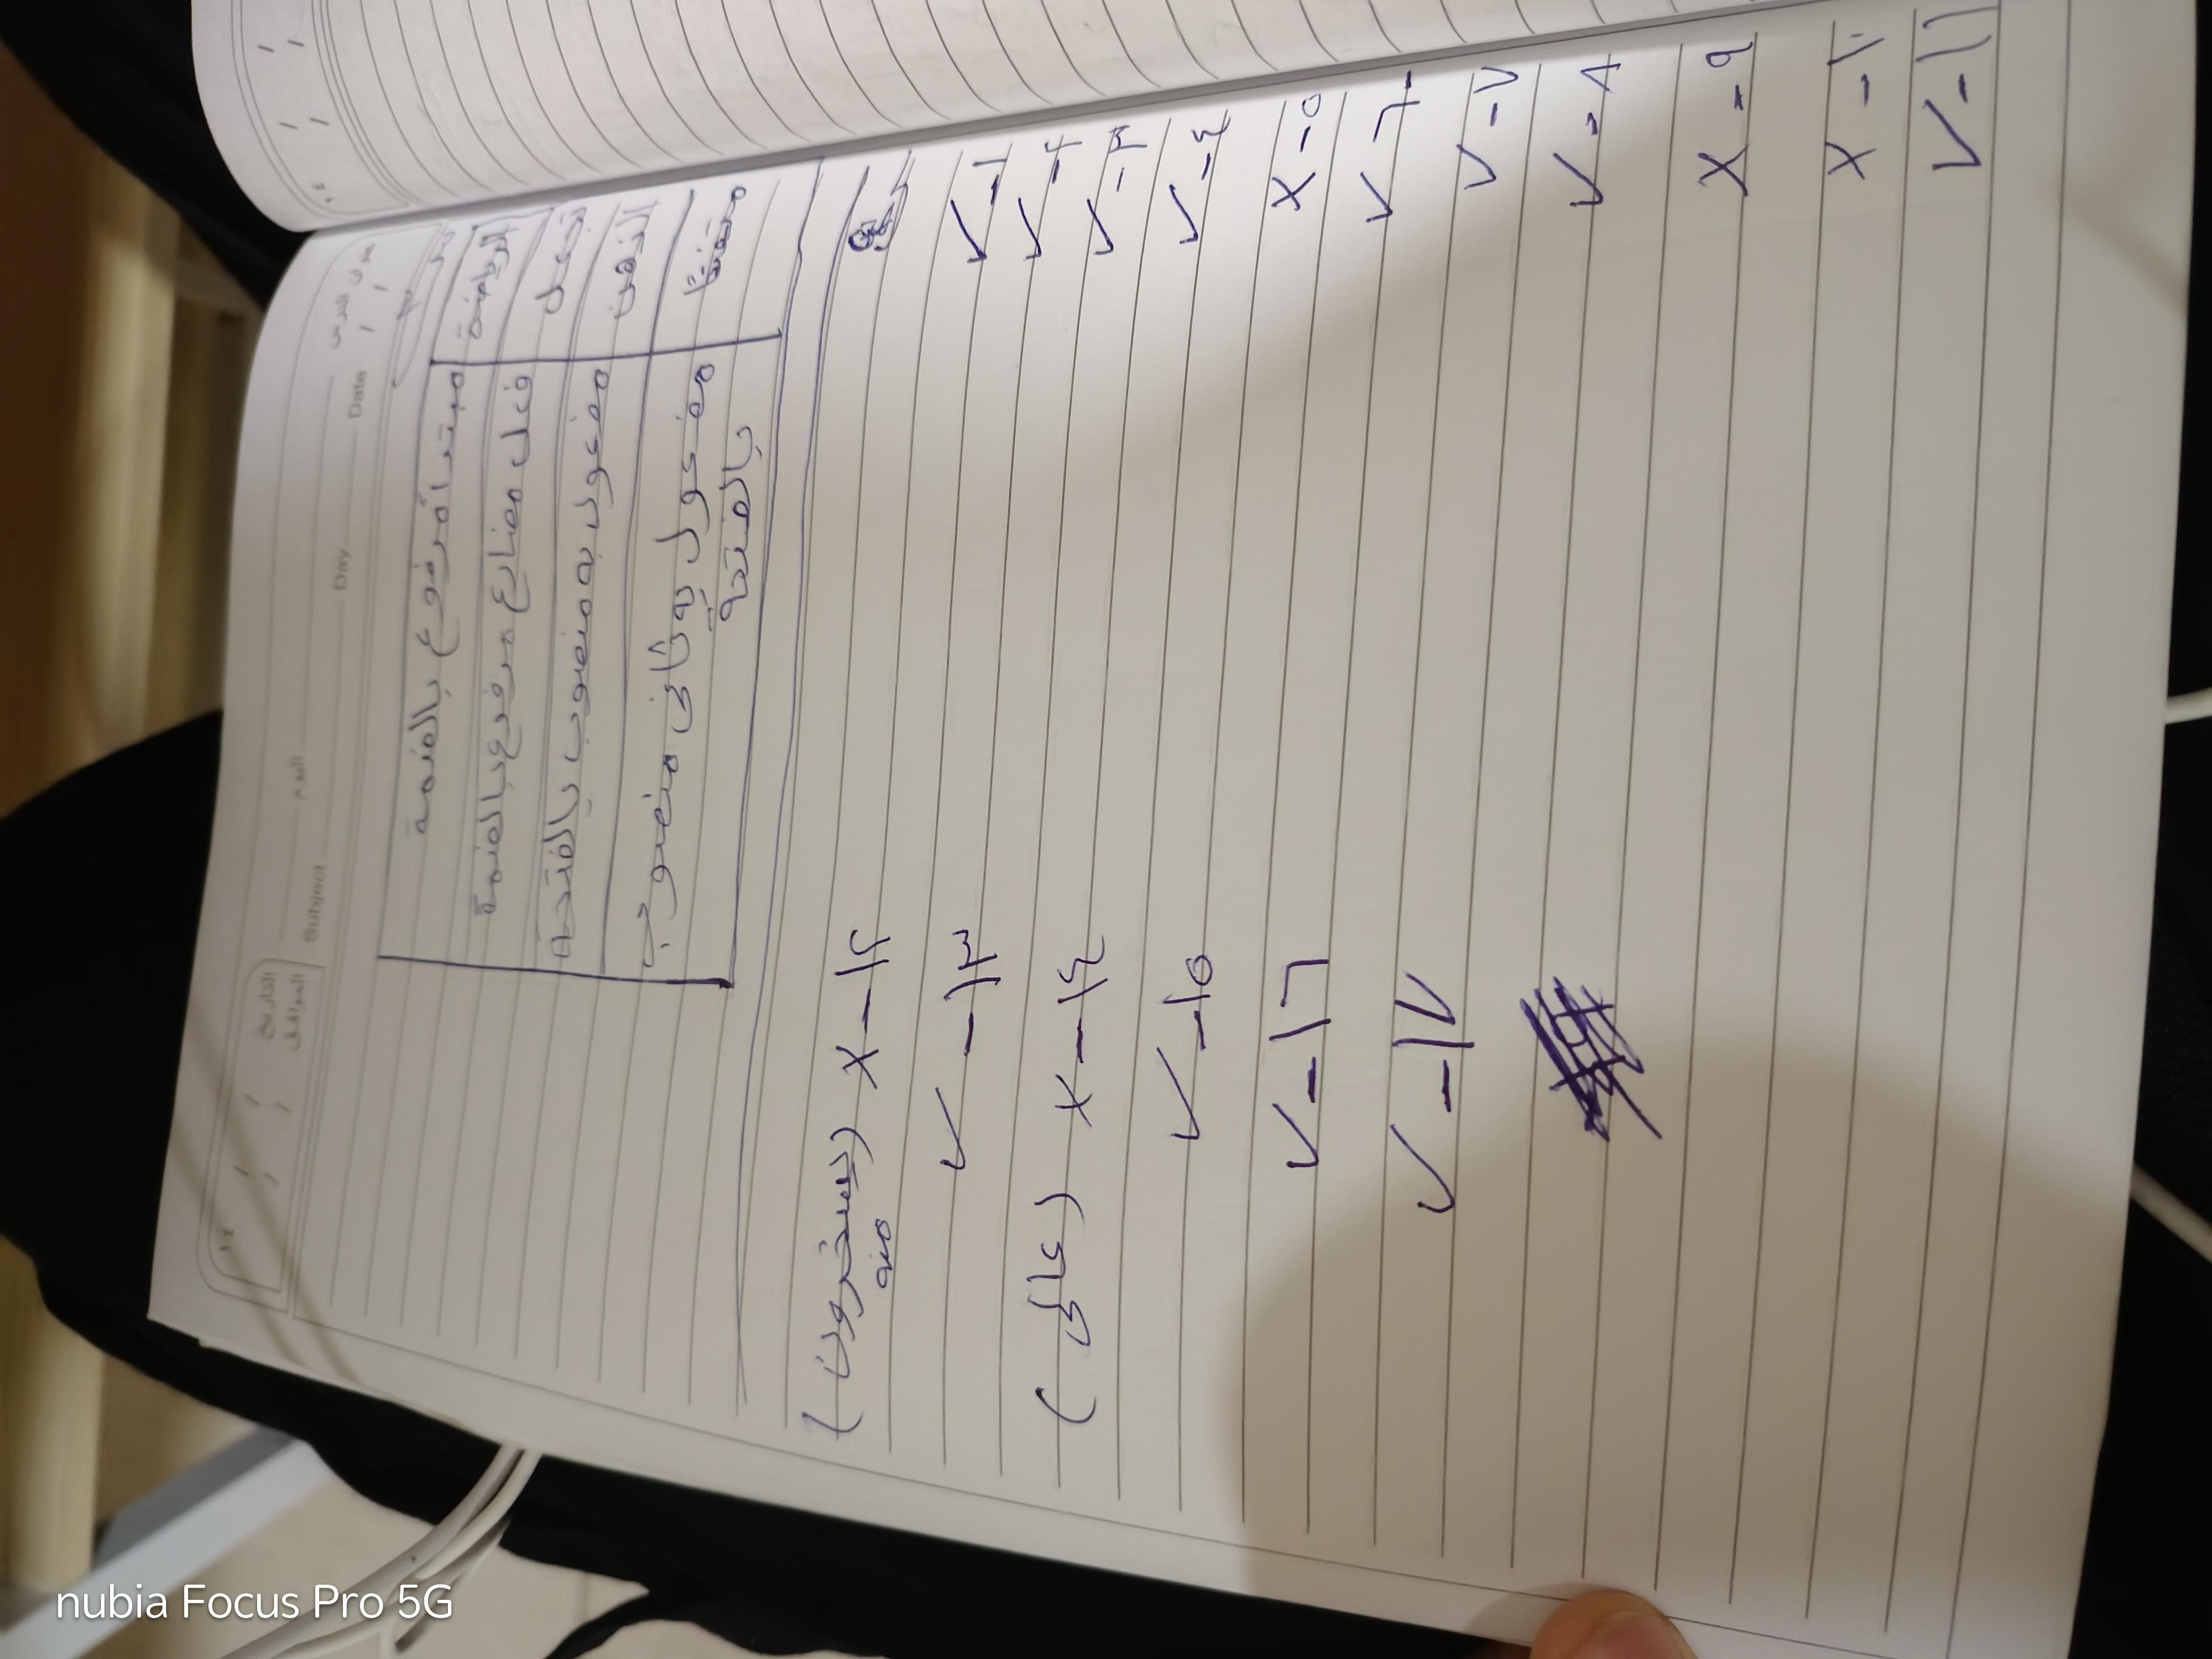 عنوان الدرس
Date
Day
اليوم
Subject
التاريخ
الموافق
الرياضة
مبتدأ مرفوع بالضمة
تجعل
فعل مضارع مرفوع بالضمة
الذهن
مفعول به منصوب بالفتحة
متفتحًا
مفعول به ثانى منصوب
بالفتحة
١- ✓
٢- ✓
٣- ✓
٤- ✓
٥- X
٦- ✓
٧- ✓
٨- ✓
٩- X
١٠- X
١١- ✓
١٢- X (يسخرون
منه)
١٣- ✓
١٤- X (عالى)
١٥- ✓
١٦- ✓
١٧- ✓
nubia Focus Pro 5G